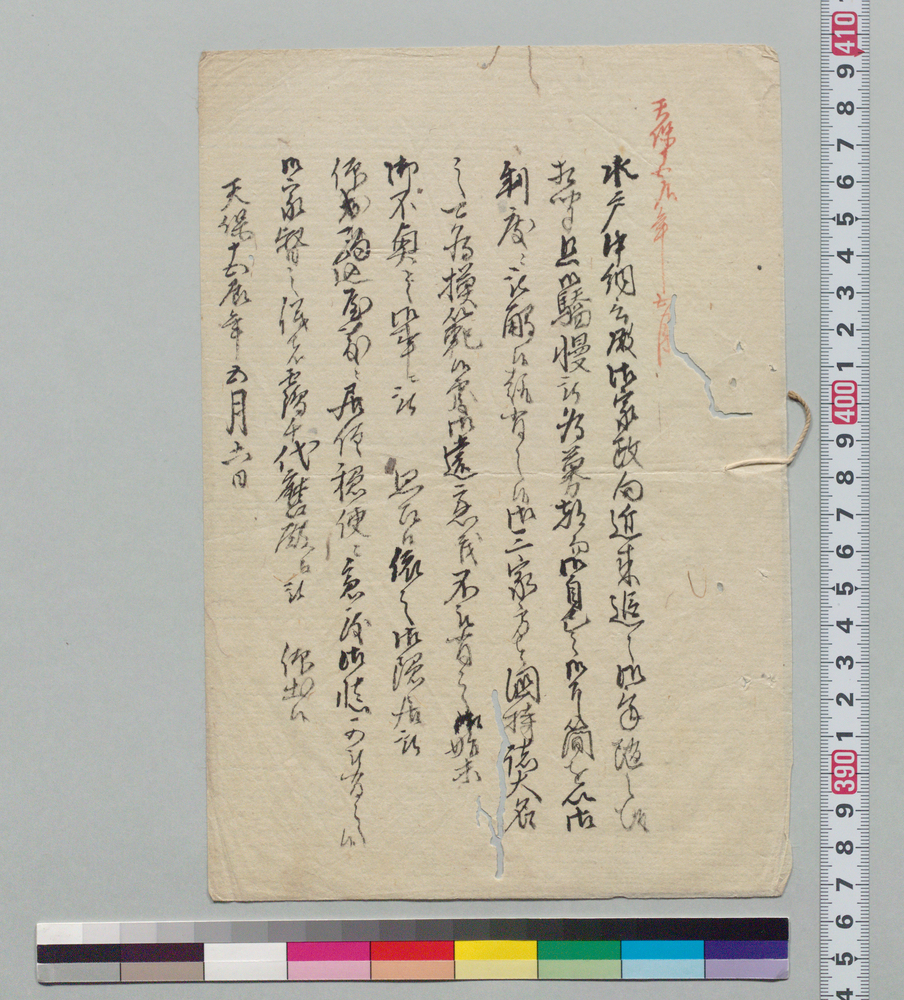 天保十五辰年五月
水戸中納言殿御家政向近来追々御気随之趣
相聞且御驕慢被為募都而御自己之御了簡を以御
制度ニ被触候類有之候御三家方者国持諸大名
之可為模範候処御遠慮茂不被為有之御始末
御不興之御事ニ被 思召候依之御隠居被
仰出駒込屋敷ニ居住穏便ニ急度御慎可被有之候
御家督之儀者鶴千代麿殿江被 仰出候
天保十五辰年五月六日
410
9
8
7
6
5
4
3
2
1
400
9
8
7
6
5
4
3
2
1
390
9
8
7
6
5
4